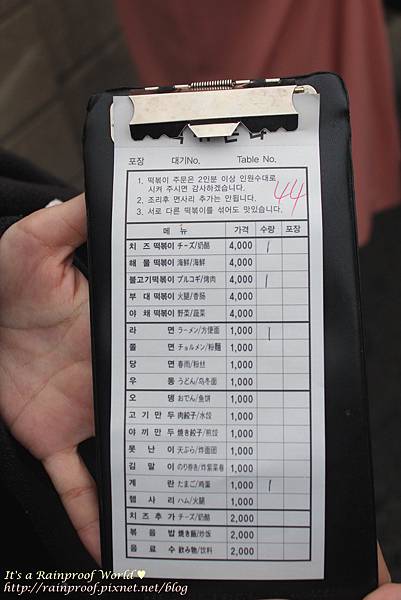 포장 대기No. Table No.
1. 떡볶이 주문은 2인분 이상 인원수대로
시켜 주시면 감사하겠습니다.
2. 조리후 면사리 추가는 안됩니다.
3. 서로 다른 떡볶이를 섞어도 맛있습니다.
44
메 뉴 가격 수량 포장
치 즈 떡볶이 チーズ/奶酪 4,000 1
해 물 떡볶이 海鮮/海鮮 4,000
불고기떡볶이 プルコギ/烤肉 4,000 1
부 대 떡볶이 火腿/香肠 4,000
야 채 떡볶이 野菜/蔬菜 4,000
라 면 ラーメン/方便面 1,000 1
쫄 면 チョルメン/粉麵 1,000
당 면 春雨/粉丝 1,000
우 동 うどん/乌冬面 1,000
오 뎅 おでん/鱼饼 1,000
고 기 만 두 肉餃子/水饺 1,000
야 끼 만 두 焼き餃子/煎饺 1,000
못 난 이 天ぷら/炸面团 1,000
김 말 이 のり巻き/炸紫菜卷 1,000
계 란 たまご/鸡蛋 1,000 1
햄 사 리 ハム/火腿 1,000
치 즈 추 가 チーズ/奶酪 2,000
볶 음 밥 焼き飯/炒饭 2,000
음 료 수 飲み物/饮料 2,000
It's a Rainproof World♥
http://rainproof.pixnet.net/blog